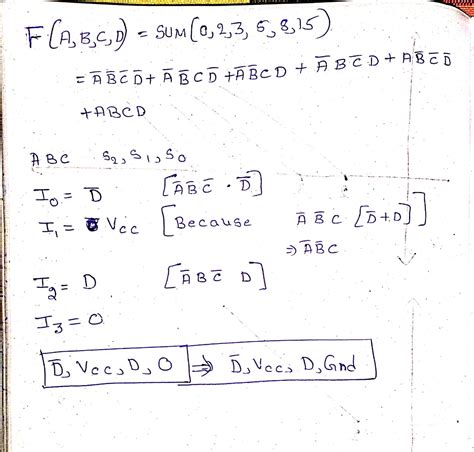 F(A,B,C,D) = SUM(0,2,3,5,8,15)
= A̅ B̅ C̅ D̅ + A̅ B̅ C D̅ + A̅ B̅ C D + A̅ B C̅ D + A B̅ C̅ D̅
+ ABCD
ABC S₂, S₁, S₀
I₀ = D̅ [A̅ B̅ C̅ · D̅]
I₁ = Vcc [Because A̅ B̅ C [D̅+D]]
⇒ A̅ B̅ C
I₂ = D [A̅ B C̅ D]
I₃ = 0
D̅, Vcc, D, 0 ⇒ D̅, Vcc, D, Gnd